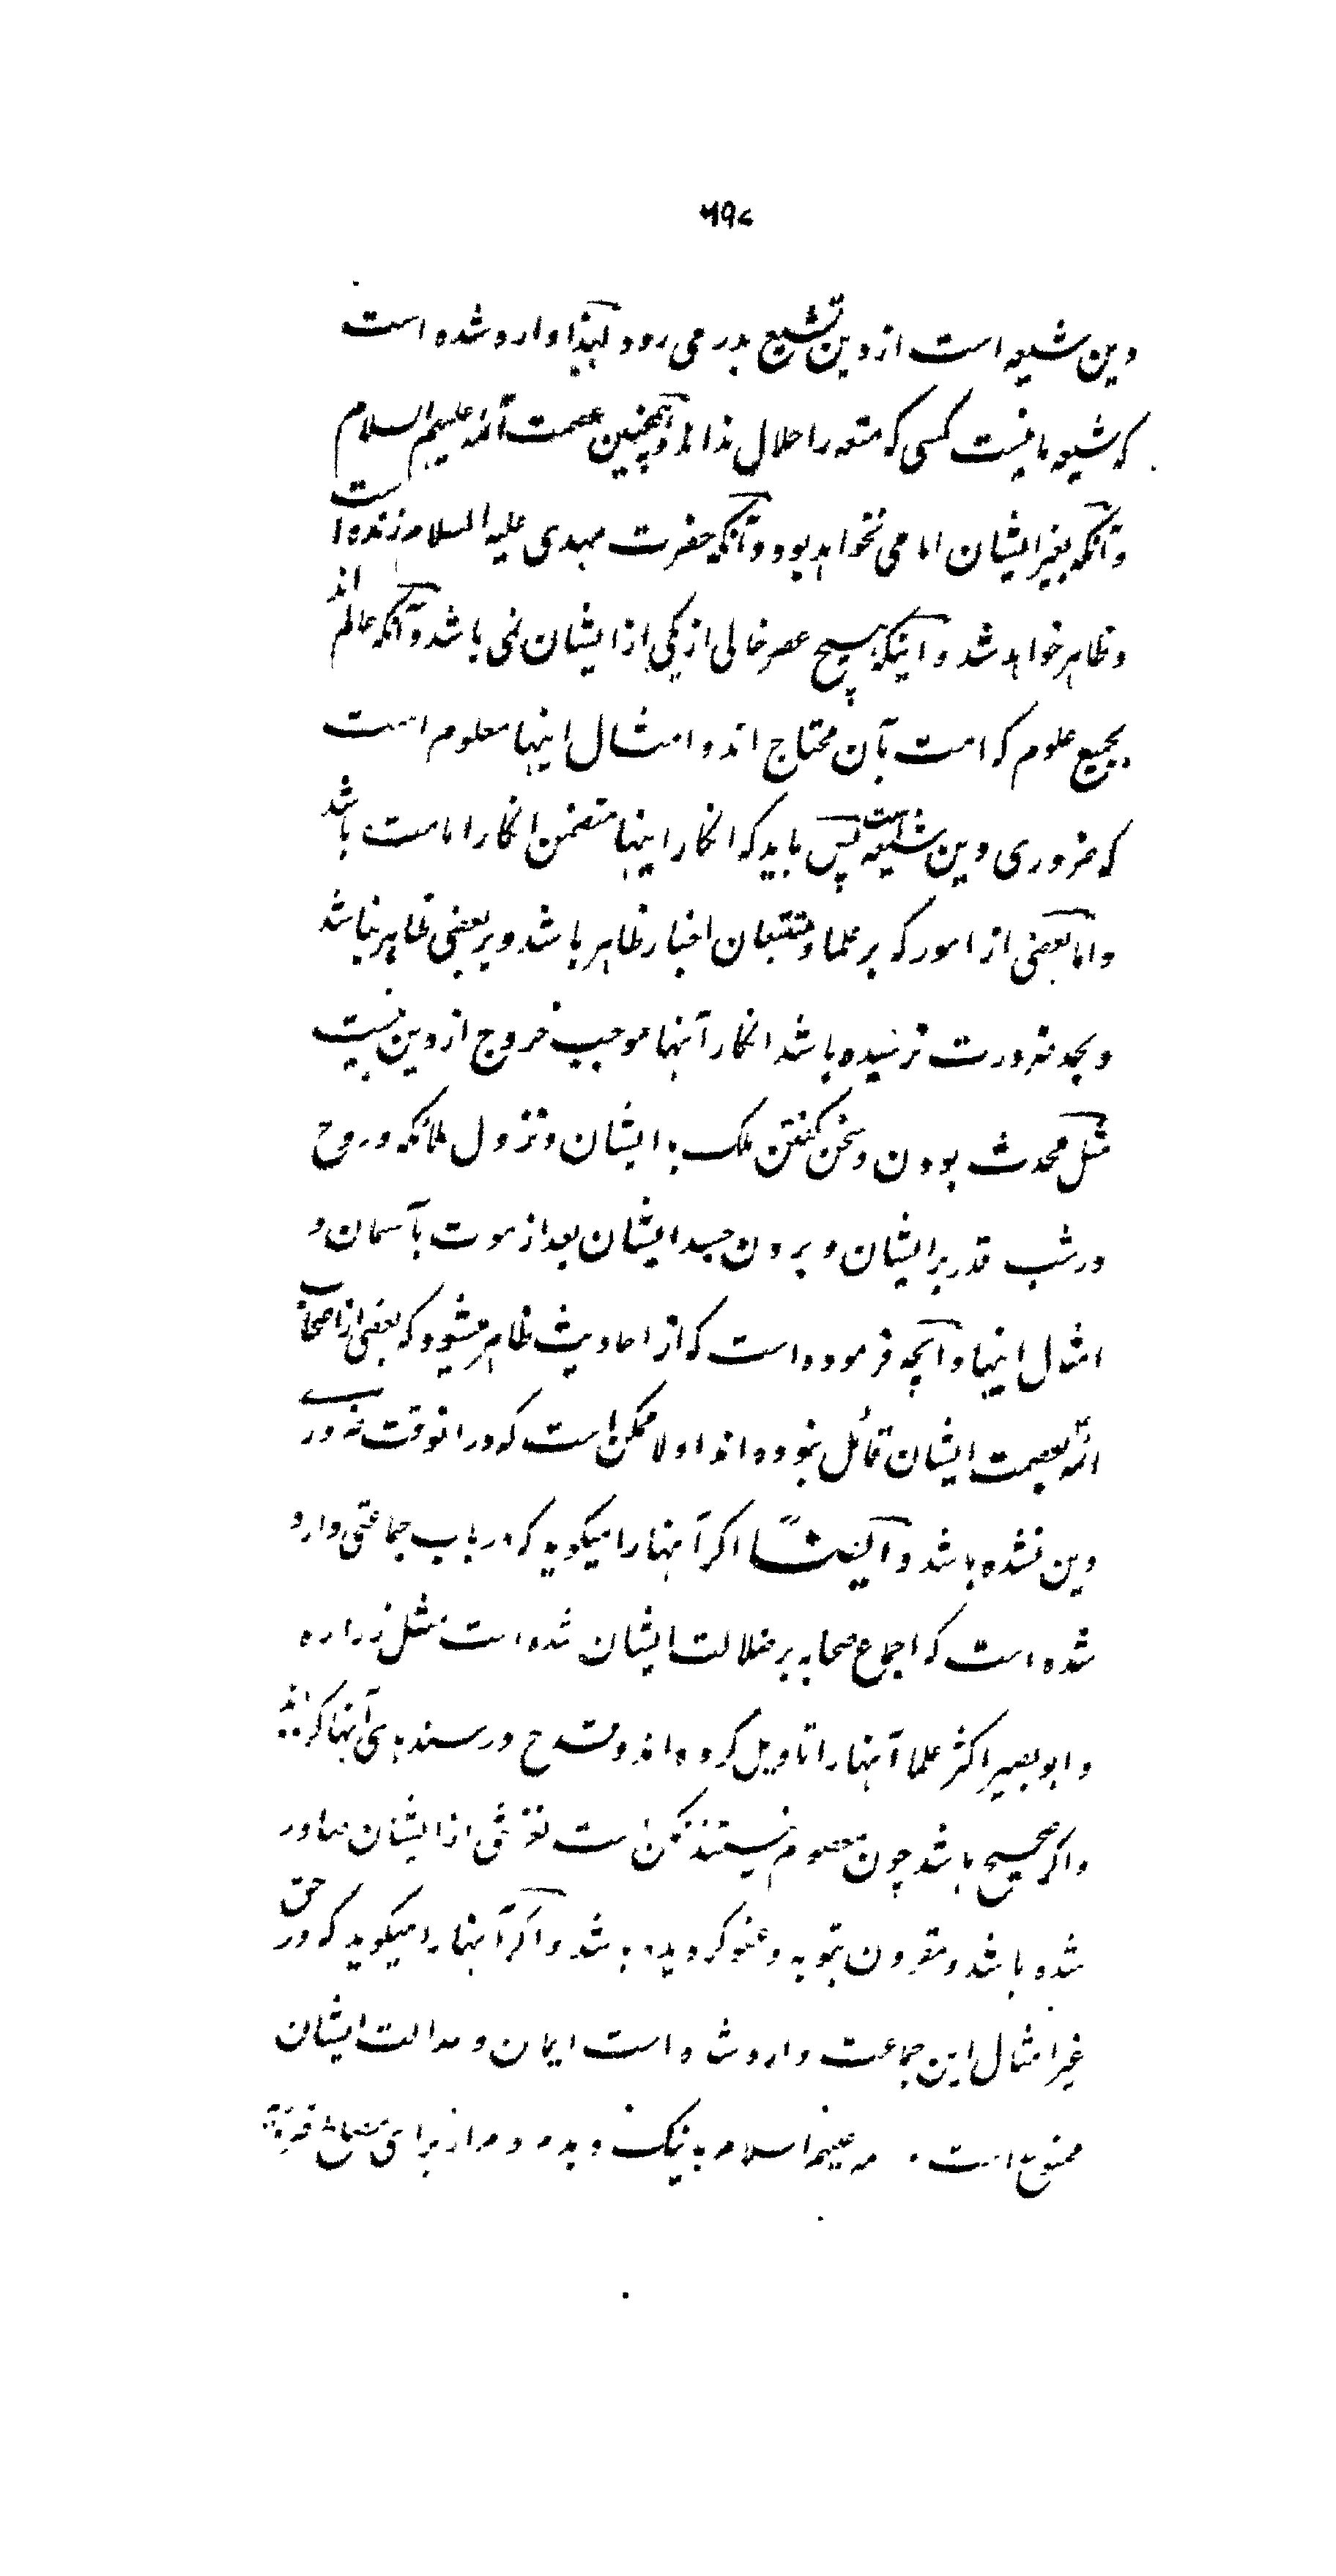 ۶۹۸
دین شیعه است از دین تشیع بدر می رود لهذا وارد شده است
که شیعه ما نیست کسی که متعه را حلال نداند و همچنین عصمت ائمه علیهم السلام
و آنکه بغیر ایشان امامی نخواهد بود و آنکه حضرت مهدی علیه السلام زنده است
و ظاهر خواهد شد و اینکه هیچ عصر خالی از یکی از ایشان نمی باشد و آنکه عالم اند
بجمیع علوم که امت بآن محتاج اند و امثال اینها معلوم است
که ضروری دین شیعه است پس باید که انکار اینها متضمن انکار امامت باشد
و اما بعضی از امور که بر علما و متتبعان اخبار ظاهر باشد و بر بعضی ظاهر نباشد
و بحد ضرورت نرسیده باشد انکار آنها موجب خروج از دین نیست
مثل محدث بودن و سخن کفتن ملک با ایشان و نزول ملائکه و روح
در شب قدر بر ایشان و بردن جسد ایشان بعد از موت بآسمان و
امثال اینها و آنچه فرموده است که از احادیث ظاهر میشود که بعضی از اصحاب
ائمه بعصمت ایشان قائل نبوده اند اولا ممکن است که در انوقت ضروری
دین نشده باشد و ایضًا اکر آنها را میکوید که در باب جماعتی وارد
شده است که اجماع صحابه بر ضلالت ایشان شده است مثل زراره
و ابو بصیر اکثر علما آنها را تاویل کرده اند و قدح در سندهای آنها کرده اند
و اکر صحیح باشد چون معصوم نیستند ممکن است لغزشی از ایشان صادر
شده باشد و مقرون بتوبه و عفو کردیده باشد و اکر آنها را میکوید که در حق
غیر امثال این جماعت وارد شده است ایمان و عدالت ایشان
ممنوع است ائمه علیهم السلام با نیک و بد مردم از برای مصالح